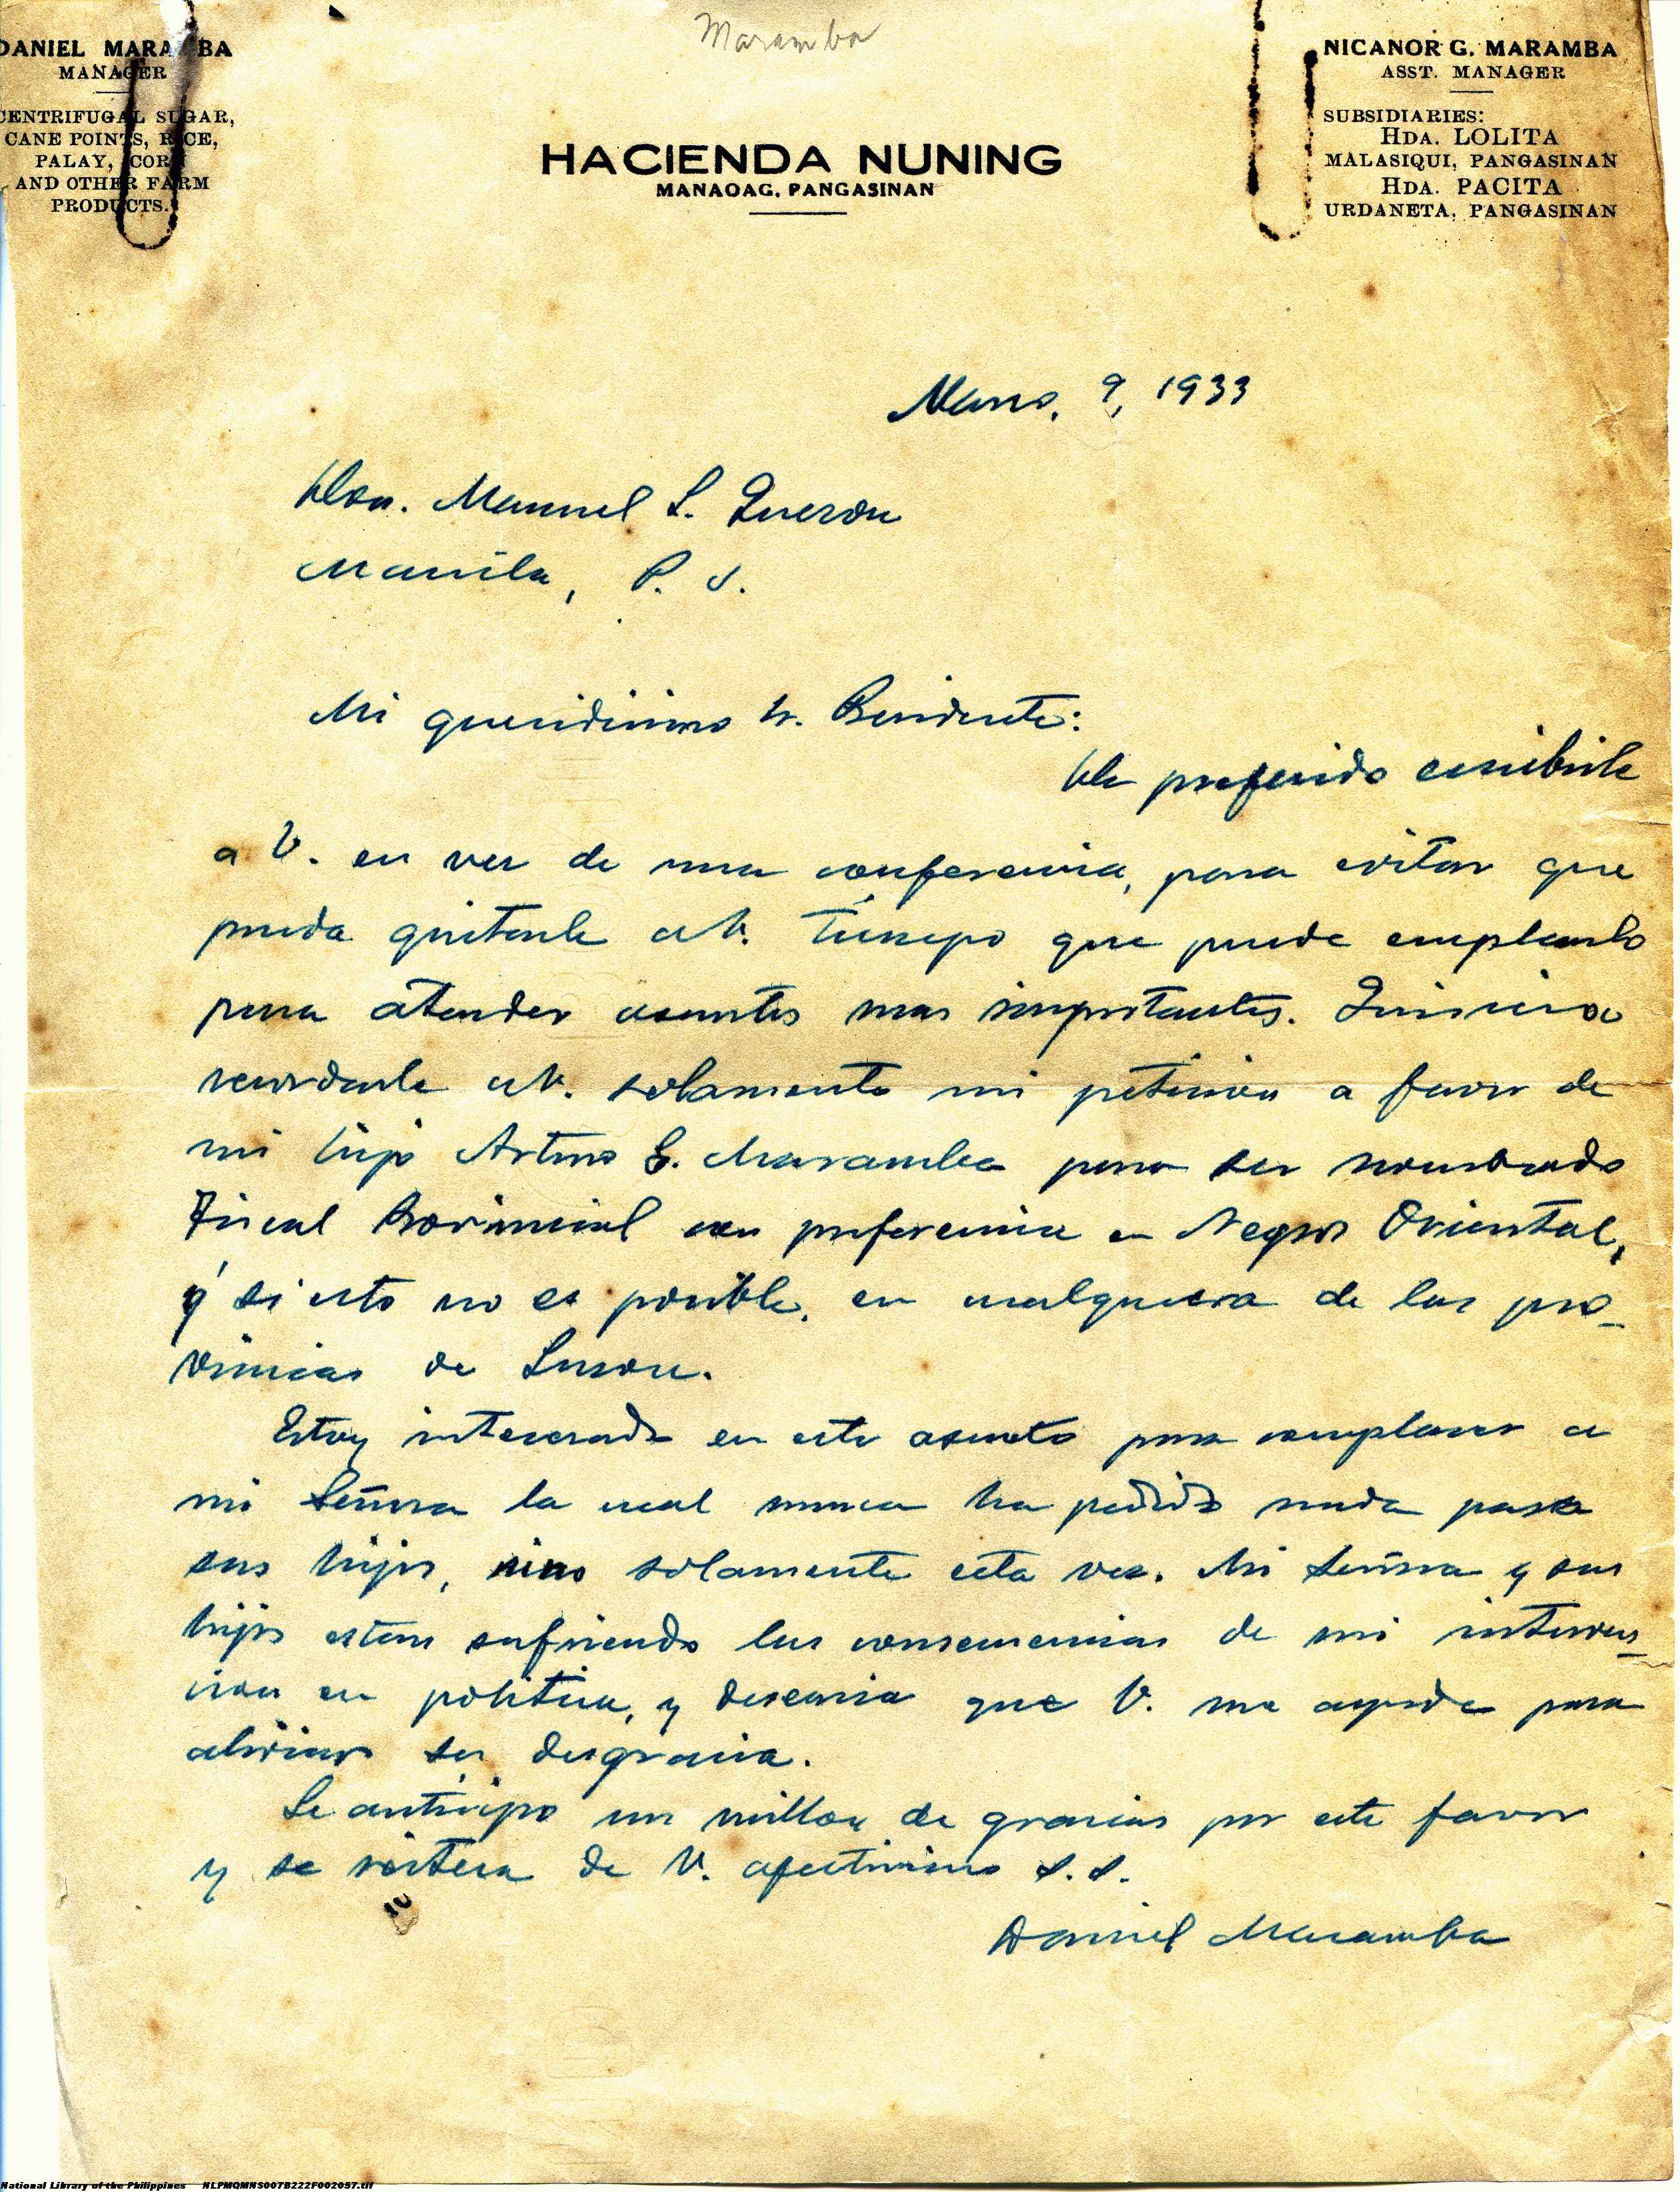 Maramba
DANIEL MARAMBA
MANAGER
CENTRIFUGAL SUGAR,
CANE POINTS, RICE,
PALAY, CORN
AND OTHER FARM
PRODUCTS.
HACIENDA NUNING
MANAOAG, PANGASINAN
NICANOR G. MARAMBA
ASST. MANAGER
SUBSIDIARIES:
HDA. LOLITA
MALASIQUI, PANGASINAN
HDA. PACITA
URDANETA, PANGASINAN
Marzo, 9, 1933
Hon. Manuel L. Quezon
Manila, P. I.
Mi queridisimo Sr. Presidente:
He preferido escribirle
a V. en vez de una conferencia, para evitar que
pueda quitarle a V. tiempo que puede emplearlo
para atender asuntos mas importantes. Quisiera
recordarle a V. solamente mi peticion a favor de
mi hijo Arturo G. Maramba para ser nombrado
Fiscal Provincial con preferencia en Negros Oriental,
y si esto no es posible, en cualquiera de las pro-
vincias de Luzon.
Estoy interesado en este asunto para complacer a
mi Señora la cual nunca ha pedido nada para
sus hijos, sino solamente esta vez. Mi Señora y sus
hijos estan sufriendo las consecuencias de mi interven-
cion en politica, y desearia que V. me ayude para
aliviar su desgracia.
Le anticipo un millon de gracias por este favor
y se reitera de V. afectisimo s.s.
Daniel Maramba
National Library of the Philippines NLPMQMNS007B222F002057.tif